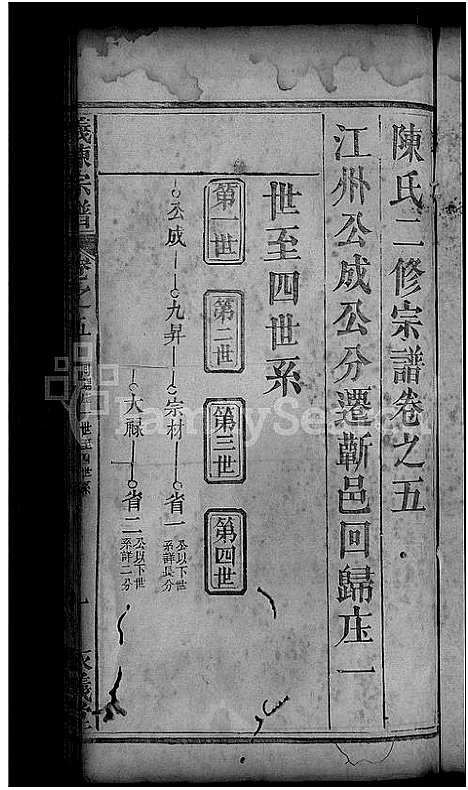 陳氏二修宗譜卷之五
江州公成公分遷蘄邑回歸庄一
世至四世系
第一世
第二世
第三世
第四世
公成
九昇
宗材
省一
公以下世系詳長分
大祿
省二
公以下世系詳二分
義陳宗譜
卷之五
世至四世系
一
義堂
FamilySearch